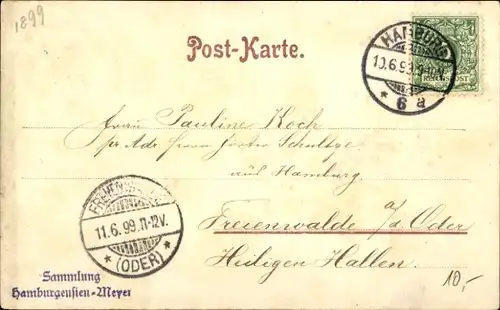 1899
Post-Karte.
HAMBURG
10.6.99.
* 6 a
REICHSPOST
Frau Pauline Koch
pr Adr Herrn Förster Schultze
aus Hamburg
Freienwalde a/d Oder
Heiligen Hallen.
11.6.99.11-12V.
* (ODER) *
Sammlung
Hamburgensien-Meyer
10,-